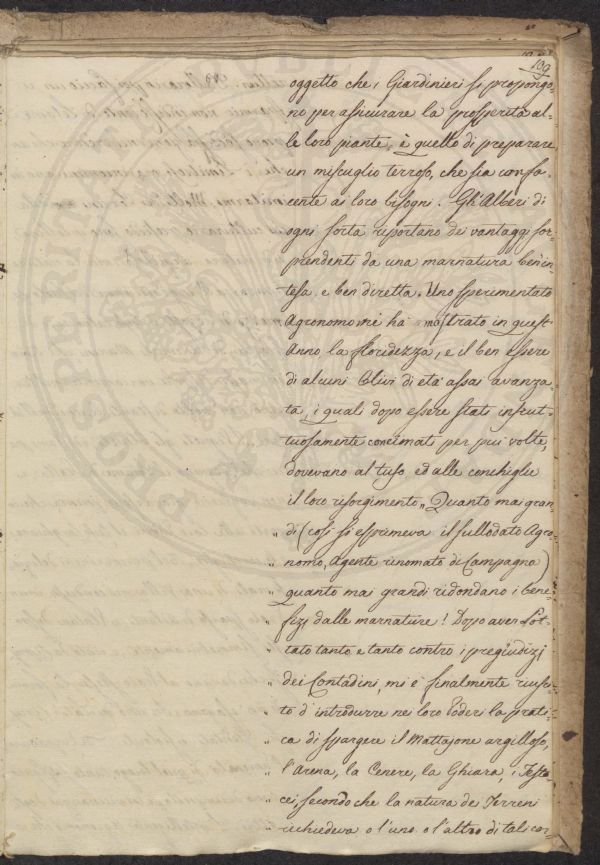 109
oggetto che i Giardinieri si propongo-
no per assicurare la prosperità al-
le loro piante, è quello di preparare
un miscuglio terroso, che sia confa-
cente ai loro bisogni. Gli Alberi di
ogni sorta riportano dei vantaggi sor-
prendenti da una marnatura ben in-
tesa, e ben diretta. Uno sperimentato
Agronomo mi ha mostrato in quest'
Anno la floridezza, e il ben essere
di alcuni Olivi di età assai avanza-
ta, i quali dopo essere stati infrut-
tuosamente concimati per più volte,
dovevano al tufo ed alle conchiglie
il loro risorgimento „ Quanto mai gran-
„ di (così si esprimeva il sullodato Agro-
„ nomo, Agente rinomato di Campagna)
„ quanto mai grandi ridondano i bene-
„ fizj dalle marnature! Dopo aver lot-
„ tato tanto e tanto contro i pregiudizj
„ dei Contadini, mi è finalmente riusci-
„ to d'introdurre nei loro Poderi la prati-
„ ca di spargere il Mattajone argilloso,
„ l'Arena, la Cenere, la Ghiara, i Testa-
„ cei secondo che la natura de' Terreni
„ richiedeva o l'uno o l'altro di tali cor-